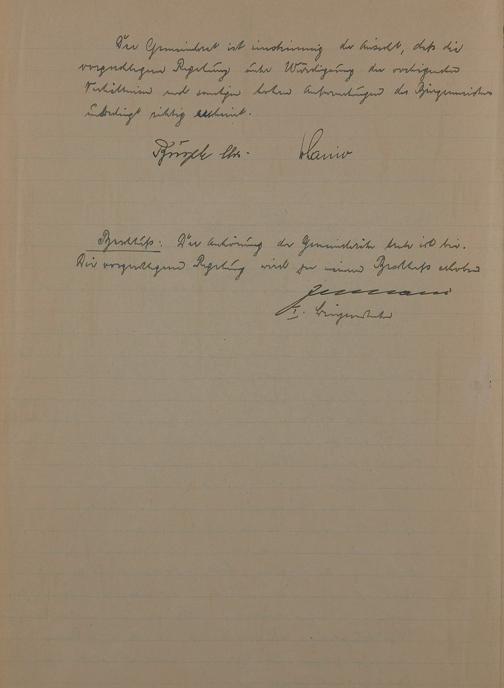 Der Gemeinderat ist einstimmig der Ansicht, daß die
vorgeschlagene Regelung unter Würdigung der vorliegenden
Verhältnisse und sonstigen hohen Anforderungen des Bürgermeisters
unbedingt richtig erscheint.
Beschluß: Der Anhörung der Gemeinderäte trete ich bei.
Die vorgeschlagene Regelung wird zu einem Beschluß erhoben
I. Beigeordneter